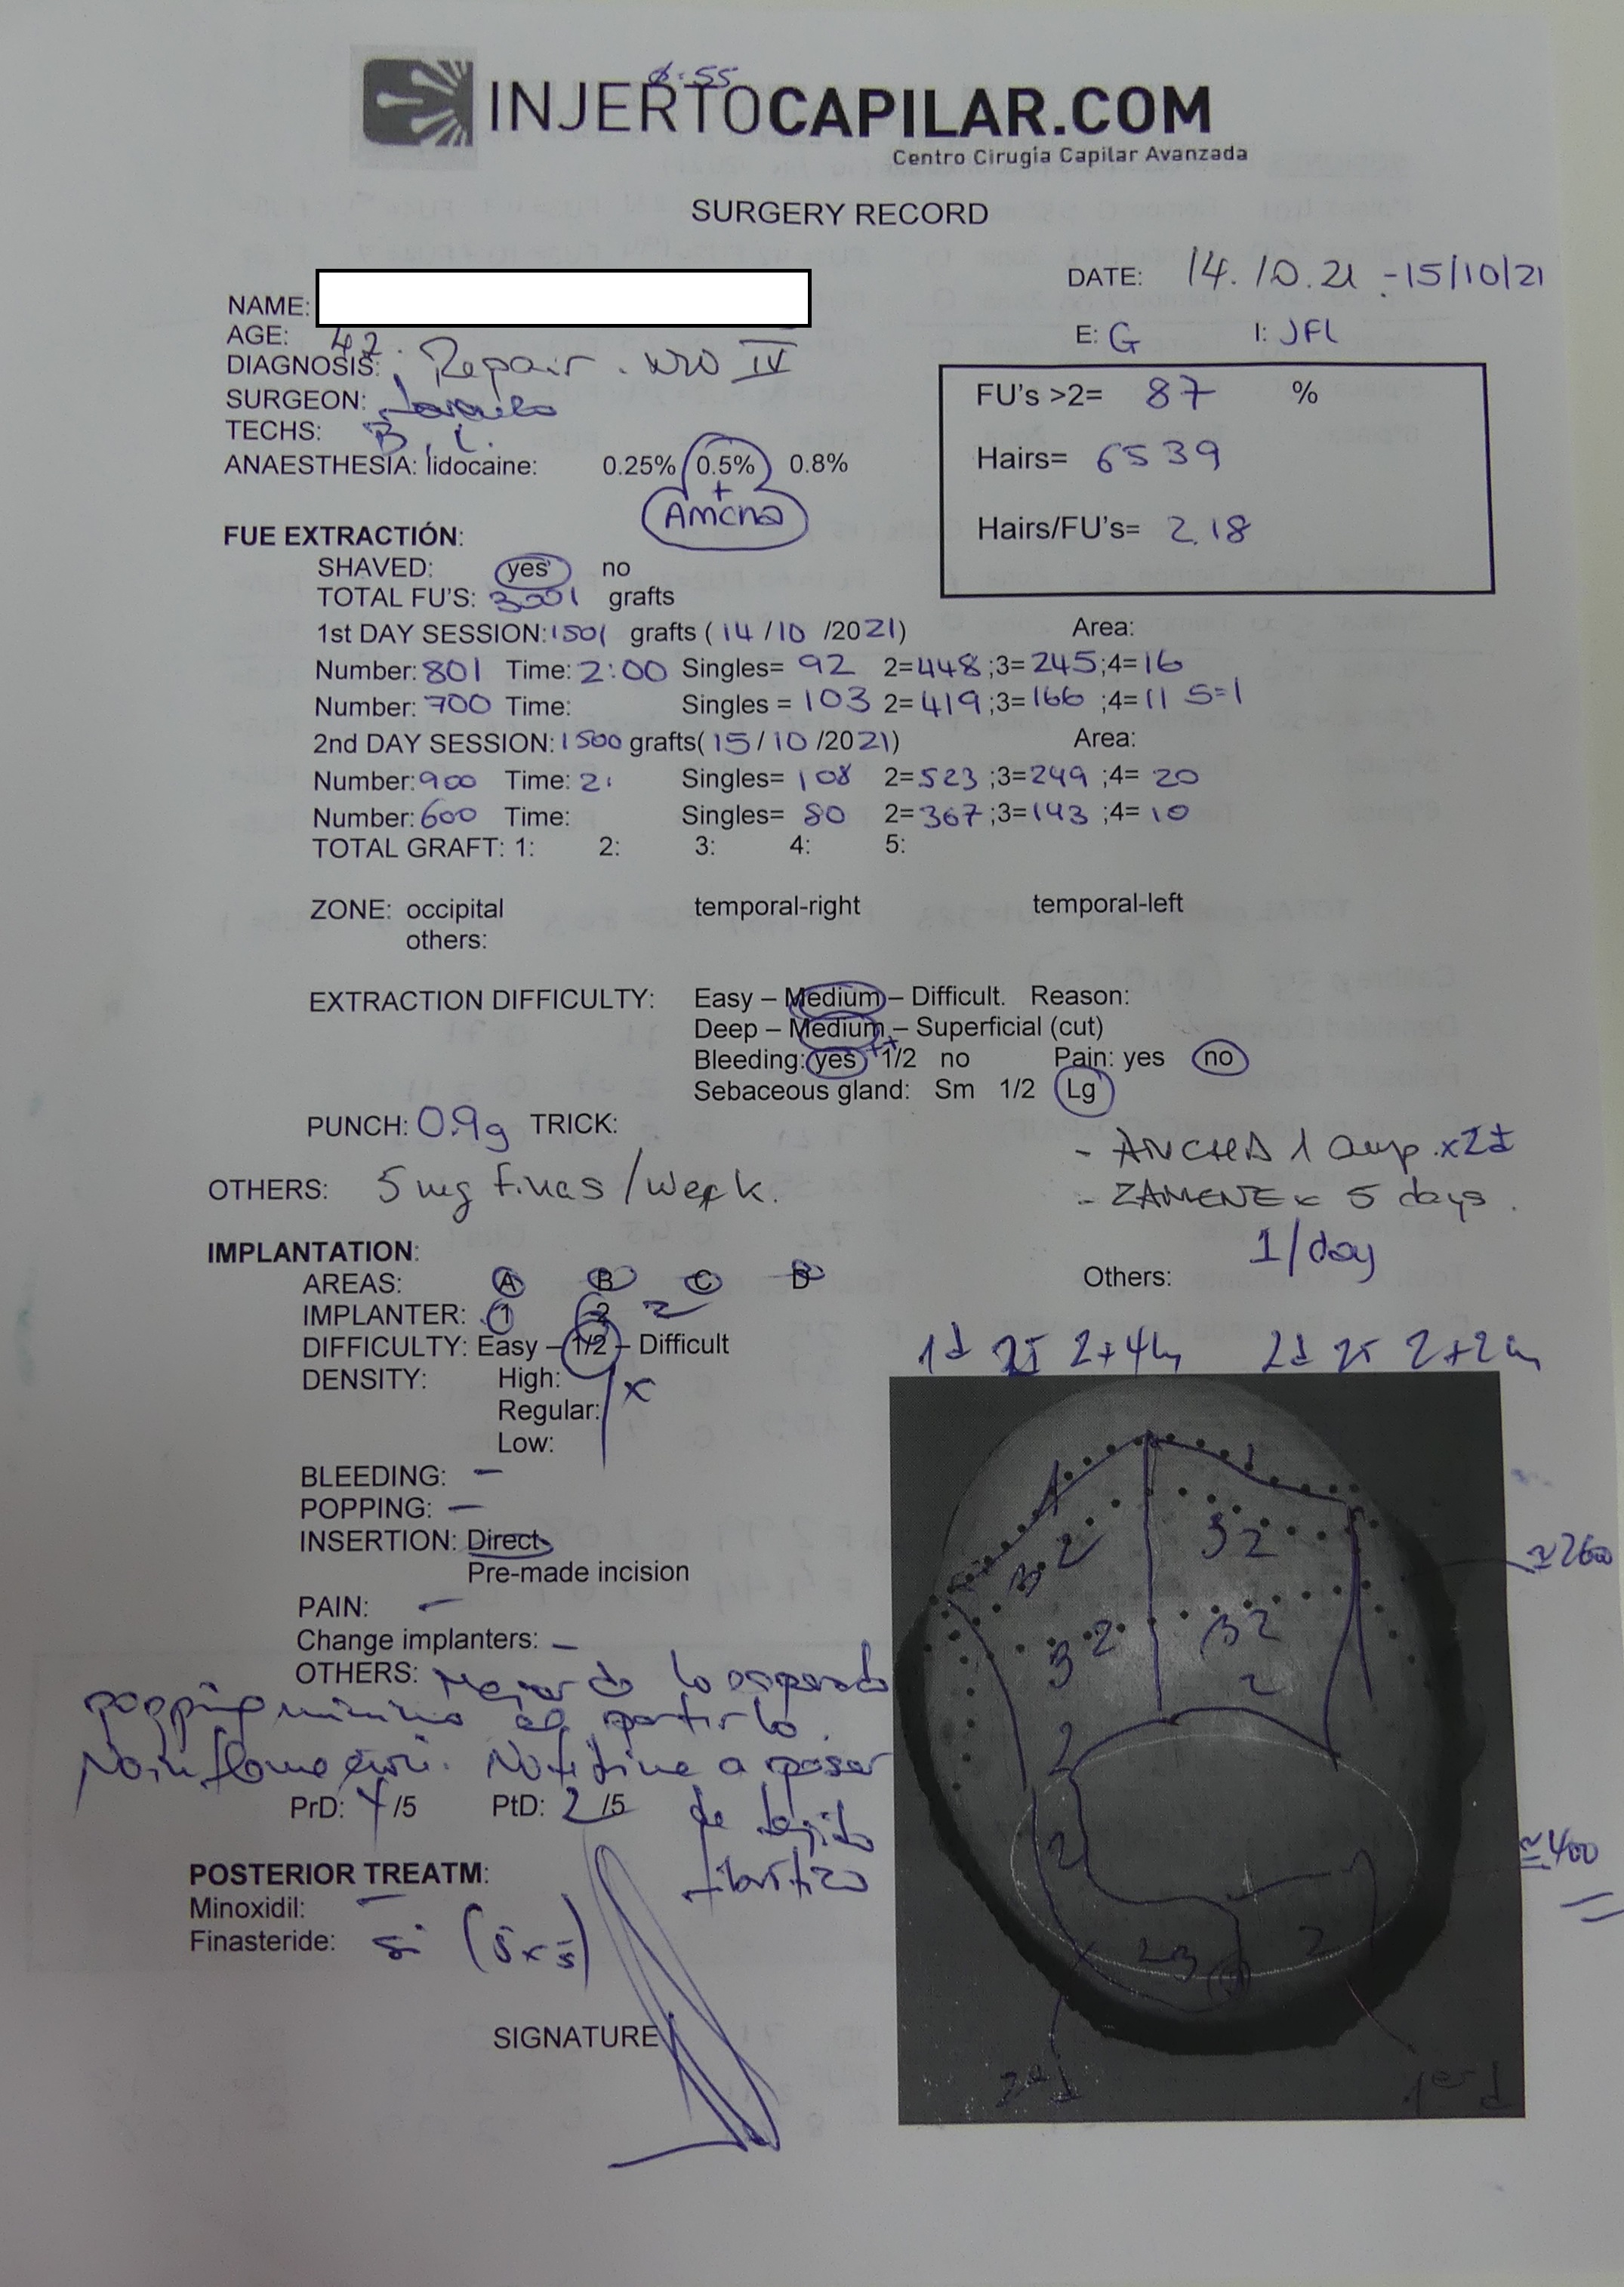 0.55
INJERTOCAPILAR.COM
Centro Cirugía Capilar Avanzada
SURGERY RECORD
DATE: 14.10.21 - 15/10/21
NAME:
AGE: 42
E: G I: JFL
DIAGNOSIS: Repair. NW IV
SURGEON:
TECHS: B, L.
ANAESTHESIA: lidocaine: 0.25% 0.5% 0.8%
+
FU's >2= 87 %
Hairs= 6539
Hairs/FU's= 2.18
FUE EXTRACTIÓN:
SHAVED: yes no
TOTAL FU'S: 3001 grafts
1st DAY SESSION: 1501 grafts ( 14 / 10 /2021) Area:
Number: 801 Time: 2:00 Singles= 92 2=448 ;3= 245 ;4= 16
Number: 700 Time: Singles = 103 2= 419 ;3= 166 ;4= 11 5=1
2nd DAY SESSION: 1500 grafts( 15 / 10 /2021) Area:
Number: 900 Time: 2: Singles= 108 2=523 ;3=249 ;4= 20
Number: 600 Time: Singles= 80 2=367 ;3=143 ;4= 10
TOTAL GRAFT: 1: 2: 3: 4: 5:
ZONE: occipital temporal-right temporal-left
others:
EXTRACTION DIFFICULTY: Easy – Medium – Difficult. Reason:
Deep – Medium – Superficial (cut)
Bleeding: yes ++ 1/2 no Pain: yes no
Sebaceous gland: Sm 1/2 Lg
PUNCH: 0.9g TRICK:
- ANCHA 1 amp. x2d
OTHERS: 5 mg Finas / week.
- ZAMENE x 5 days.
1/day
IMPLANTATION:
AREAS: A B C D
Others:
IMPLANTER: 1 2 2
DIFFICULTY: Easy – 1/2 – Difficult
1d 2+4h 2d 2+2h
DENSITY: High: x
Regular:
Low:
BLEEDING: –
POPPING: –
INSERTION: Direct
Pre-made incision
PAIN: –
Change implanters: –
OTHERS: Mejor de lo esperado
popping mínimo al partirlo
No inflamación. a pesar
de tejido
fibrótico
PrD: 4 /5 PtD: 2 /5
POSTERIOR TREATM:
Minoxidil: –
Finasteride: si (5xs)
SIGNATURE
1 1
3 2 3 2
3 2 3 2
2
2
2
23 2
≈2600
≈400
2º d
1er d